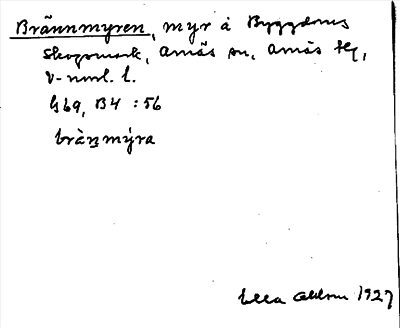 Brännmyren, myr å Byggdens
skogsmark, Arnäs sn, Arnäs tlg,
V-norrl. l.
G69, B4 : 56
bràn̲mýra
Ella Ohlson 1927